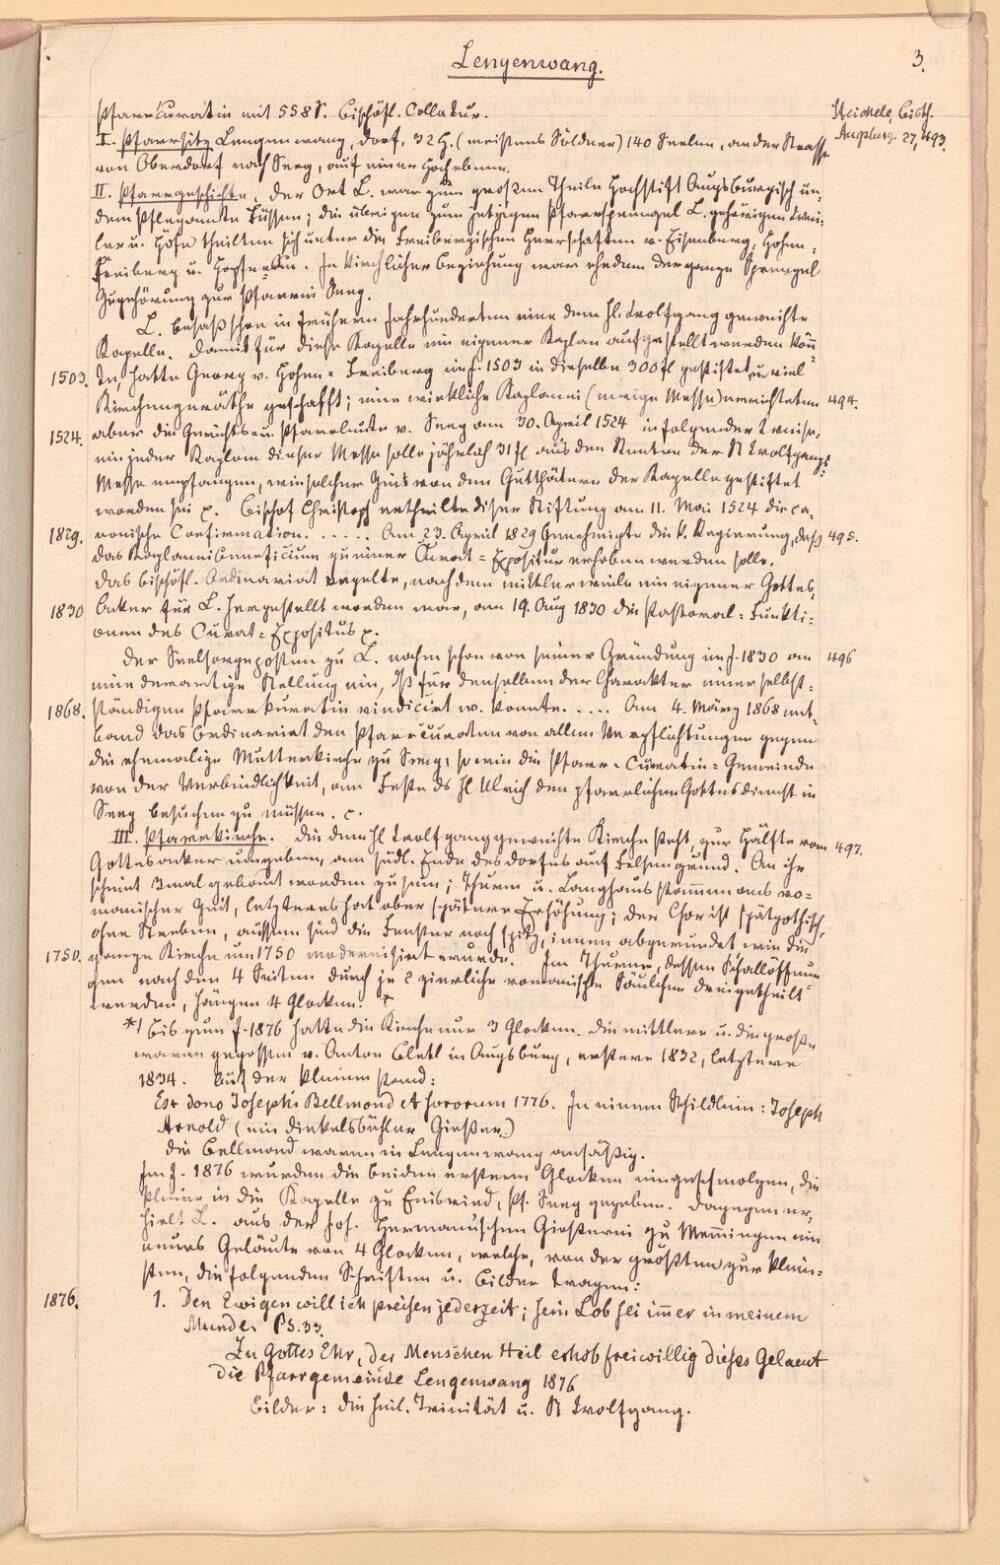 Lengenwang.
3.
Pfarrkuratie mit 558 S. bischöfl. Collatur.
Steichele, Bisth.
Augsburg. 27, 493.
I. Pfarrsitz Lengenwang, Dorf, 32 H. (meistens Söldner) 140 Seelen, an der Strasse
von Oberdorf nach Seeg, auf einer Hochebene.
II. Pfarrgeschichte. Der Ort L. war zum großen Theile Hochstift Augsburgisch un-
dem Pflegamte Füssen; die übrigen zum jetzigen Pfarrsprengel L. gehörigen Wei-
ler u. Höfe theilten sich unter die Freibergischen Herrschaften v. Eisenberg, Hohen-
Freiberg u. Hopferau. In kirchlicher Beziehung war ehedem der ganze Sprengel
Zugehörung zur Pfarrei Seeg.
L. besaß schon in frühern Jahrhunderten eine dem hl. Wolfgang geweihte
Kapelle. Damit für diese Kapelle ein eigener Kaplan aufgestellt werden kön-
1503. te, hatte Georg v. Hohen-Freiberg im J. 1503 in dieselbe 300 fl gestiftet u. viel
Kirchengeräthe geschafft; eine wirkliche Kaplanei (ewige Messe) errichteten 494.
1524. aber die Gerichts u. Pfarrleute v. Seeg am 30. April 1524 in folgender Weise:
ein jeder Kaplan dieser Messe solle jährlich 31 fl aus den Renten der St Wolfgangs
Messe empfangen, wie solcher Zins von den Gutthätern der Kapelle gestiftet
worden sei p. Bischof Christoph ertheilte diser Stiftung am 11. Mai 1524 die ca-
1829. nonische Confirmation. . . . . . Am 23. April 1829 Genehmigte die k. Regierung, daß 495.
das Kaplaneibeneficium zu einer Curat-Expositur erhoben werden solle.
Das bischöfl. Ordinariat regelte, nachdem mittlerweile ein eigener Gottes-
1830 Acker für L. hergestellt worden war, am 19. Aug 1830 die Pastoral-Funkti-
onen des Curat-Expositus p.
Der Seelsorgeposten zu L. nahm schon von seiner Gründung im J. 1830 an 496
eine derartige Stellung ein, dß für denselben der Charakter einer selbst-
1868. ständigen Pfarrkuratie vindicirt w. konnte. . . . . Am 4. März 1868 ent-
band das Ordinariat den Pfarrcuraten von allen Verpflichtungen gegen
die ehemalige Mutterkirche zu Seeg, so wie die Pfarr-Curatie-Gemeinde
von der Verbindlichkeit, am Feste ds hl Ulrich den pfarrlichen Gottesdienst in
Seeg besuchen zu müssen. c.
III. Pfarrkirche. Die dem hl Wolfgang geweihte Kirche steht, zur Hälfte vom 497.
Gottesacker umgeben, am südl. Ende des Dorfes auf Felsengrund. An ihr
scheint 3mal gebaut worden zu sein; Thurm u. Langhaus stammen aus ro-
manischer Zeit, letzteres hat aber spätere Erhöhung; der Chor ist spätgothisch,
ohne Streben, aussen sind die Fenster noch spitz, innen abgerundet wie die
1750. ganze Kirche um 1750 modernisiert wurde. Im Thurme, dessen Schallöffnun-
gen nach den 4 Seiten durch je 2 zierliche romanische Säulchen dreigetheilt
werden, hängen 4 Glocken. *
*) Bis zum J. 1876 hatte die Kirche nur 3 Glocken. Die mittlere u. die große
waren gegossen v. Anton Bletl in Augsburg, erstere 1832, letztere
1834. Auf der kleinen stand:
Ex dono Josephi Bellmond et sororum 1776. In einem Schildlein: Joseph
Arnold (ein Dinkelsbühler Gießer.)
Die Bellmond waren in Lengenwang ansäßig.
Im J. 1876 wurden die beiden erstern Glocken eingeschmolzen, die
kleine in die Kapelle zu Enisried, Pf. Seeg gegeben. Dagegen er-
hielt L. aus der Joh. Hermann'schen Gießerei zu Memmingen ein
neues Geläute von 4 Glocken, welche, von der größten zur klein-
sten, die folgenden Schriften u. Bilder tragen:
1876. 1. Den Ewigen will ich preisen jederzeit; sein Lob sei immer in meinem
Munde. Ps. 33.
Zu Gottes Ehr, des Menschen Heil erhob freiwillig dieses Gelaeut
die Pfarrgemeinde Lengenwang 1876
Bilder: die heil. Trinität u. St Wolfgang.